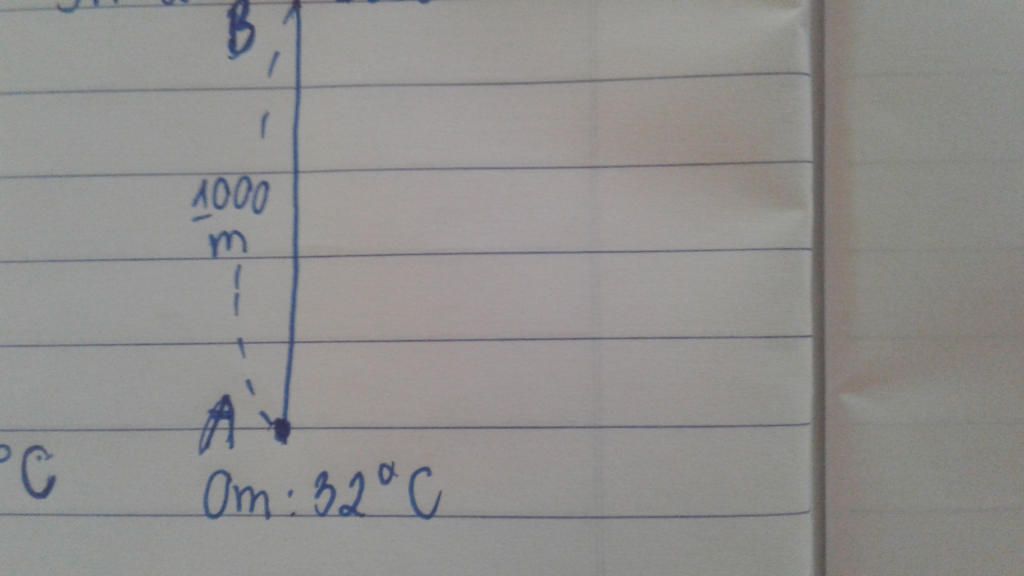 B
1000
m
A
°C
0m: 32°C